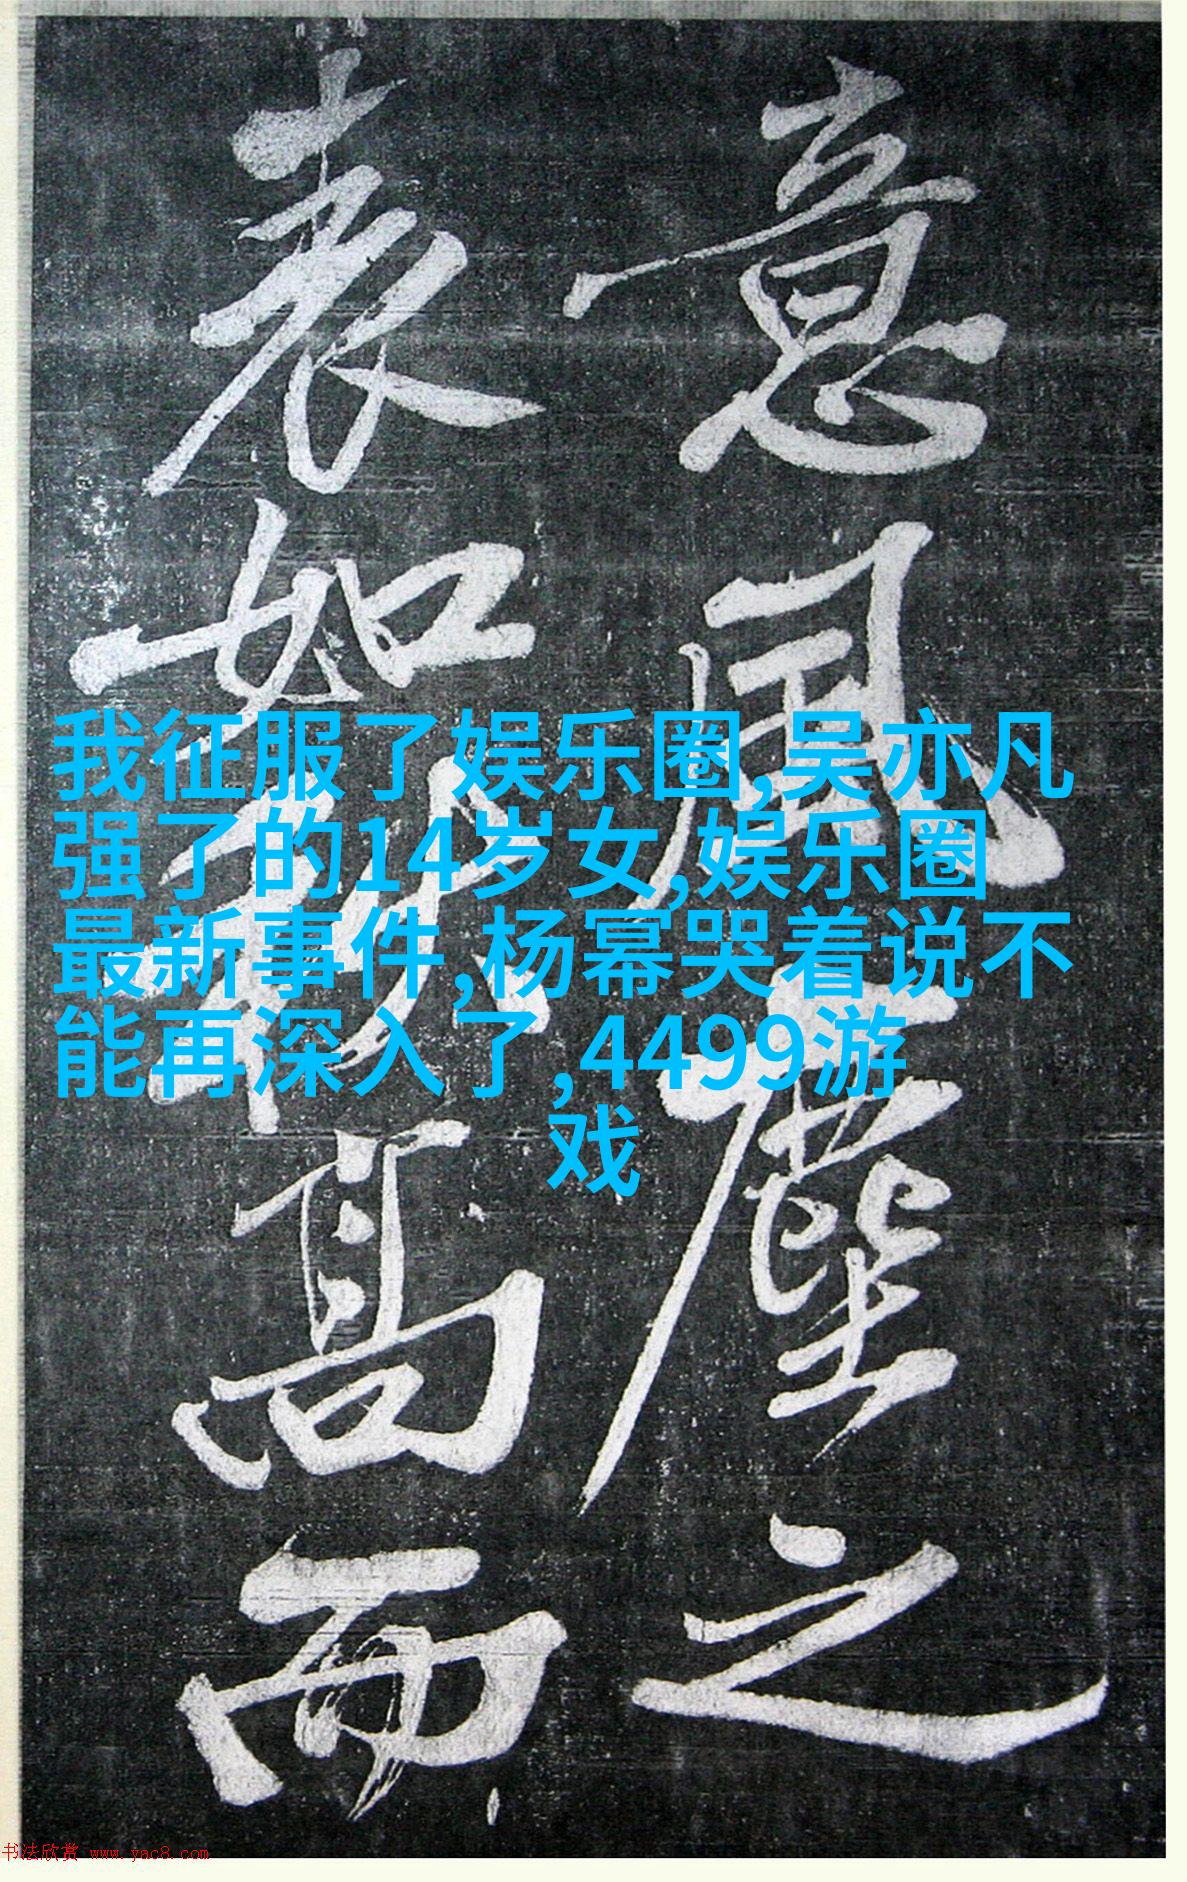 意風塵之
表如秋高而
我征服了娱乐圈,吴亦凡
强了的14岁女,娱乐圈
最新事件,杨幂哭着说不
能再深入了,4499游
戏
书法欣赏 www.yac8.com